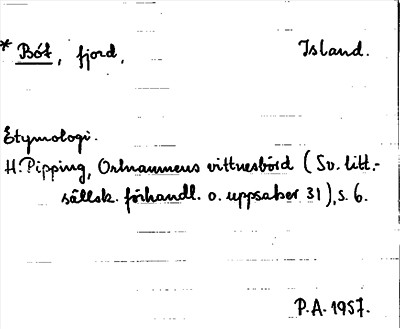 * Bót, fjord, Island.
Etymologi.
H. Pipping, Ortnamnens vittnesbörd (Sv. litt.-
sällsk. förhandl. o. uppsatser 31), s. 6.
P.A. 1957.